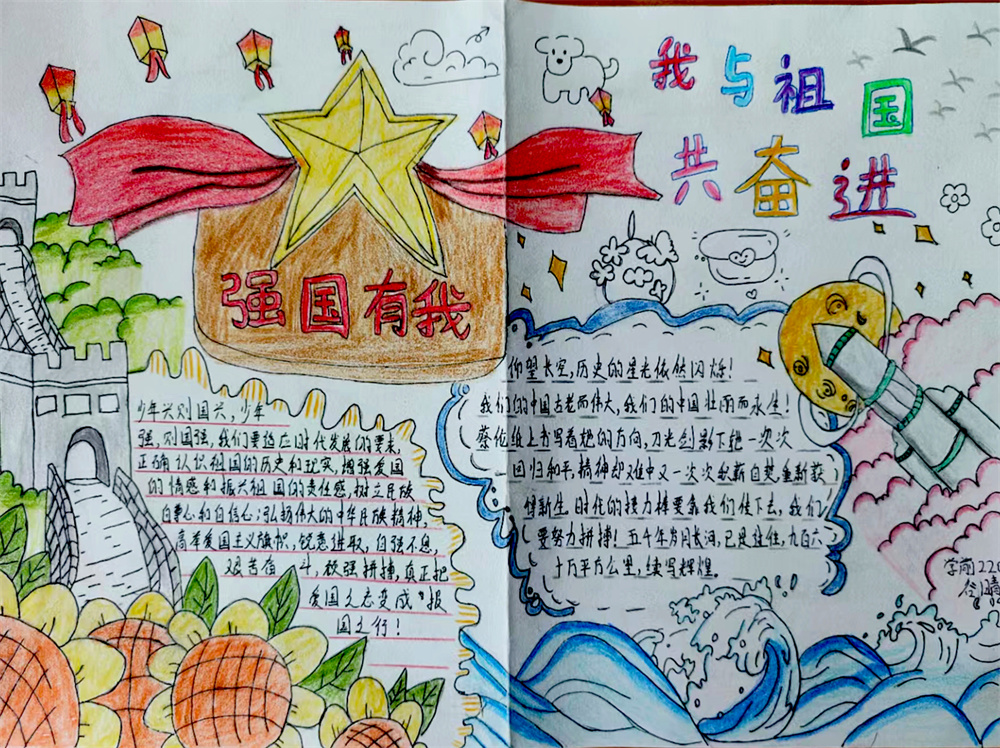 强国有我
少年兴则国兴，少年
强，则国强，我们要适应时代发展的要求，
正确认识祖国的历史和现实，增强爱国
的情感和振兴祖国的责任感，树立民族
自尊心和自信心；弘扬伟大的中华民族精神，
高举爱国主义旗帜，锐意进取，自强不息，
艰苦奋斗，顽强拼搏，真正把
爱国之志变成"报
国之行！
我与祖国
共奋进
仰望长空，历史的星光依然闪烁！
我们的中国古老而伟大，我们的中国壮丽而永生！
蔡伦纸上书写着她的方向，刀光剑影下她一次次
回归和平，精神却难中又一次次
重新获
得新生 时代的接力棒要靠我们传下去，我们
要努力拼搏！五千年岁月长河，已是过往，九百六
十万平方公里，续写辉煌。
学前220